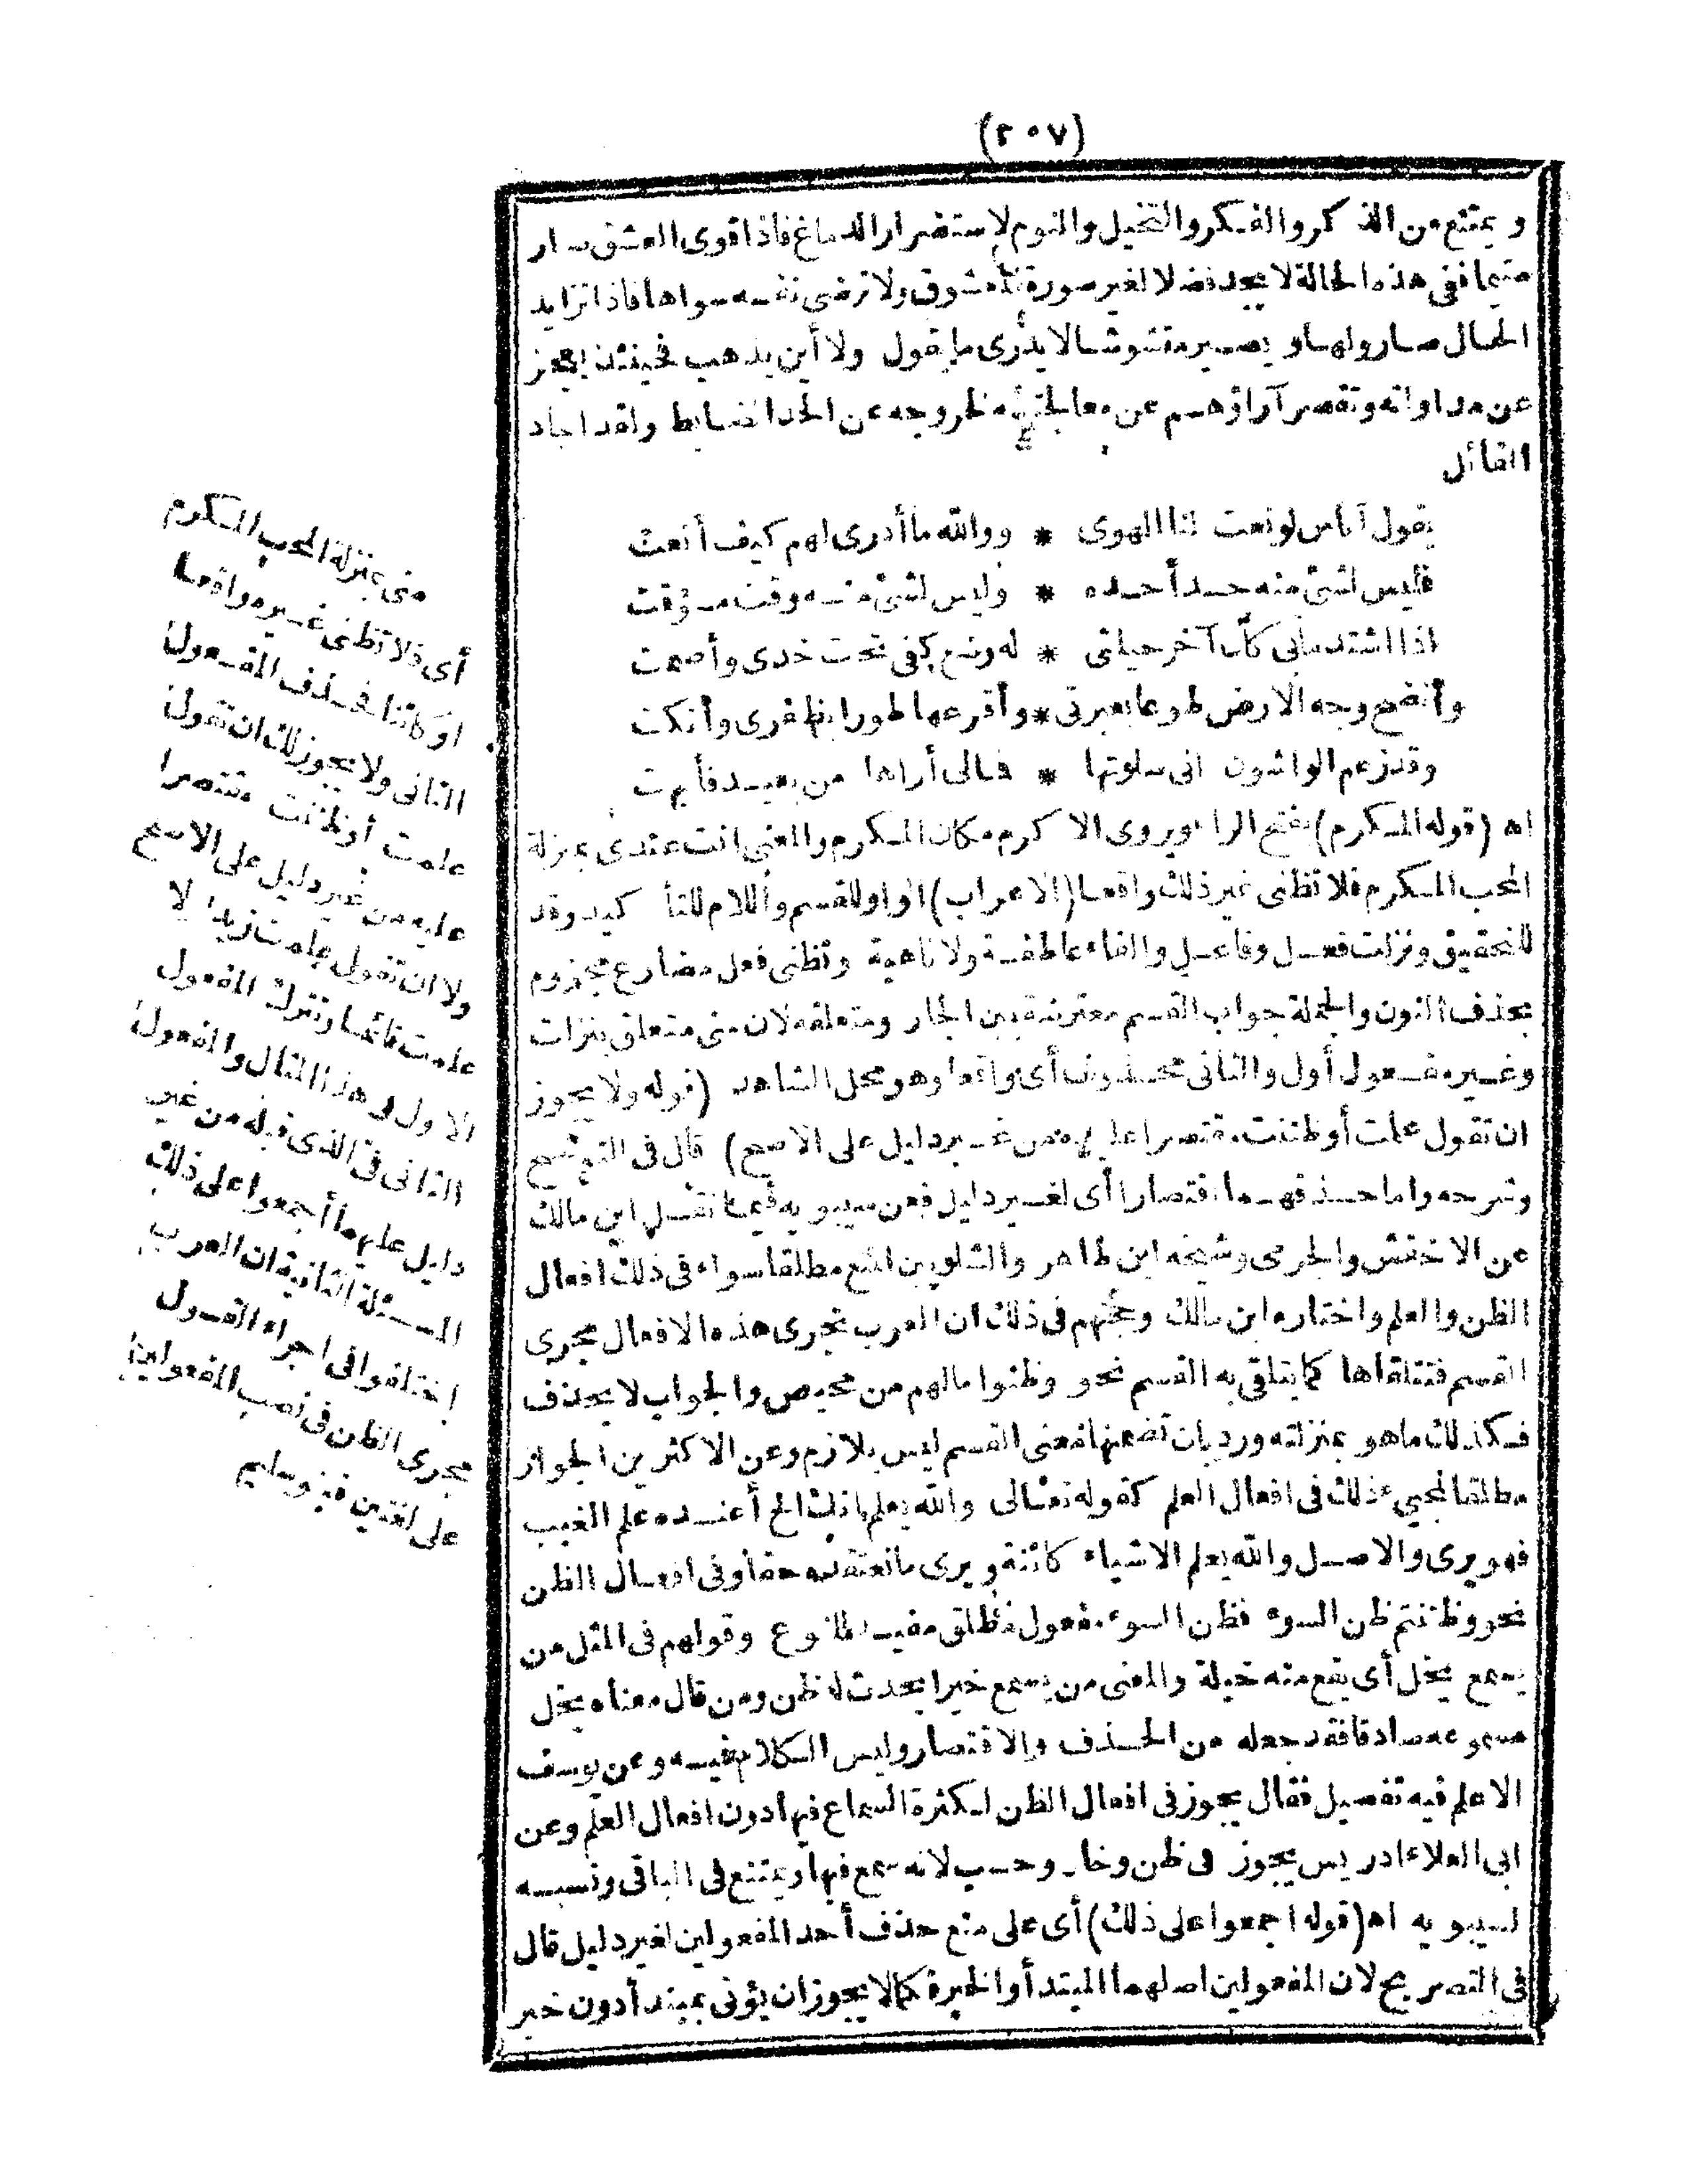 (٢٠٧)
ويمتنع من الذكر والفكر والتخيل والنوم لاستضرار الدماغ فاذا قوى العشق صار
متيما ففى هذه الحالة لا يجد فضلا لغير صورة المعشوق ولا ترضى نفسه سواها فاذا تزايد
الحال صار ولها ويصير مشوشا لا يدرى ما يقول ولا أين يذهب فحينئذ يعجز
عن مداواته وتقصر آراؤهم عن معالجته لخروجه عن الحد الضابط ولقد اجاد
القائل
يقول أناس لو نعت لنا الهوى * ووالله ما أدرى لهم كيف أنعت
فليس لشئ منه حد أحده * وليس لشئ منه وقت مؤقت
اذا اشتد مابى كان آخر حيلتى * له وضع كفى تحت خدى وأصمت
وأنضح وجه الارض طورا بعبرتى * وأقرعها طورا بظفرى وأنكت
وقد زعم الواشون انى سلوتها * فمالى أراها من بعيد فأبهت
اه (قوله المكرم) بفتح الراء ويروى الاكرم مكان المكرم والمعنى انت عندى بمنزلة
المحب المكرم فلا تظنى غير ذلك واقعا (الاعراب) الواو للقسم واللام للتأكيد وقد
للتحقيق ونزلت فعل وفاعل والفاء عاطفة ولا ناهية وتظنى فعل مضارع مجزوم
بحذف النون والجملة جواب القسم معترضة بين الجار ومتعلقه لان منى متعلق بنزلت
وغيره مفعول أول والثانى محذوف أى واقعا وهو محل الشاهد (قوله ولا يجوز
ان تقول علمت أو ظننت مقتصرا عليه من غير دليل على الاصح) قال فى التوضيح
وشرحه واما حذفهما اقتصارا أى لغير دليل فعن سيبويه فيما نقل ابن مالك
عن الاخفش والجرمى وشيخه ابن طاهر والشلوبين المنع مطلقا سواء فى ذلك افعال
الظن والعلم واختاره ابن مالك وحجتهم فى ذلك ان العرب تجرى هذه الافعال مجرى
القسم فتتلقاها كما يتلقى به القسم نحو وظنوا مالهم من محيص والجواب لا يحذف
فكذلك ما هو بمنزلته ورد بان تضمنها معنى القسم ليس بلازم وعن الاكثرين الجواز
مطلقا لمجىء ذلك فى افعال العلم كقوله تعالى والله يعلم اذلك الخ أعنده علم الغيب
فهو يرى والاصل والله يعلم الاشياء كائنة ويرى ما نعتقده حقا وفى افعال الظن
نحو وظننتم ظن السوء فظن السوء مفعول مطلق مفيد للنوع وقولهم فى المثل من
يسمع يخل أى يقع منه خيلة والمعنى من يسمع خبرا يحدث له ظن ومن قال معناه يخل
مسموعه صادقا فقد جعله من الحذف والاقتصار وليس الكلام فيه وعن يوسف
الاعلم فيه تفصيل فقال يجوز فى افعال الظن لكثرة السماع فيها دون افعال العلم وعن
ابى العلاء ادريس يجوز فى ظن وخال وحسب لانه سمع فيها ويمتنع فى الباقى ونسبه
لسيبويه اه (قوله اجمعوا على ذلك) أى على منع حذف أحد المفعولين لغير دليل قال
فى التصريح لان المفعولين اصلهما المبتدأ والخبر فكما لا يجوز ان يؤتى بمبتدأ دون خبر
منى بمنزلة المحب المكرم
أى فلا تظنى غيره واقعا
أو كائنا فحذف المفعول
الثانى ولا يجوز لك ان تقول
علمت أو ظننت مقتصرا
عليه من غير دليل على الاصح
ولا ان تقول علمت زيدا لا
علمت قائما وتترك المفعول
الاول فى هذا المثال والمفعول
الثانى فى الذى قبله من غير
دليل عليهما أجمعوا على ذلك
المسئلة الثانية ان العرب
اختلفوا فى اجراء القول
مجرى الظن فى نصب المفعولين
على لغتين فبنو سليم